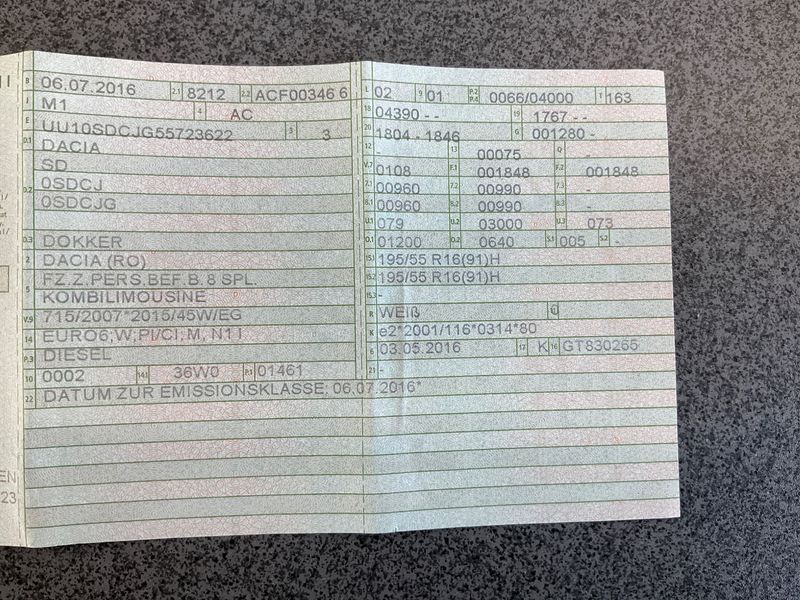 B 06.07.2016 2.1 8212 2.2 ACF00346 6
J M1 4 AC
E UU10SDCJG55723622 3 3
D.1 DACIA
SD
D.2 0SDCJ
0SDCJG
D.3 DOKKER
2 DACIA (RO)
FZ.Z.PERS.BEF.B. 8 SPL.
5 KOMBILIMOUSINE
V.9 715/2007*2015/45W/EG
14 EURO6;W,PI/CI,M, N1 I
P.3 DIESEL
10 0002 14.1 36W0 P.1 01461
22 DATUM ZUR EMISSIONSKLASSE: 06.07.2016*
L 02 9 01 P.2 P.4 0066/04000 T 163
18 04390 - - 19 1767 - -
20 1804 - 1846 G 001280 -
12 13 00075 Q -
V.7 0108 F.1 001848 F.2 001848
7.1 00960 7.2 00990 7.3 -
8.1 00960 8.2 00990 8.3 -
U.1 079 U.2 03000 U.3 073
O.1 01200 O.2 0640 S.1 005 S.2 -
15.1 195/55 R16(91)H
15.2 195/55 R16(91)H
15.3 -
R WEIß 11
K e2*2001/116*0314*80
6 03.05.2016 17 K 16 GT830265
21 -
EN
23